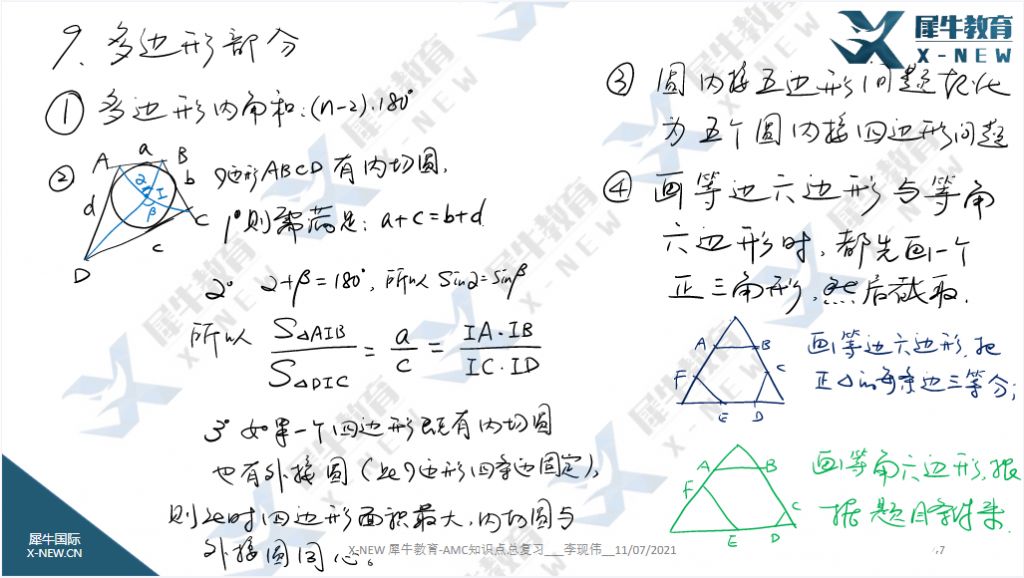 犀牛教育
X-NEW
9. 多边形部分
① 多边形内角和:(n-2)·180°
② A a B
d α I b
β C
c
D
边形ABCD有内切圆.
1° 则需满足: a+c=b+d
2° α+β=180°, 所以 Sinα=Sinβ
所以 S△AIB/S△DIC = a/c = IA·IB/IC·ID
3° 如果一个四边形既有内切圆
也有外接圆(此边形四条边固定),
则此时四边形面积最大,内切圆与
外接圆同心。
③ 圆内接五边形问题转化
为五个圆内接四边形问题
④ 画等边六边形与等角
六边形时,都先画一个
正三角形,然后截取.
A B
F C
E D
画等边六边形,把
正△的每条边三等分;
A B
F C
E D
画等角六边形,根
据题目条件来.
犀牛国际
X-NEW.CN
X-NEW 犀牛教育-AMC知识点总复习___李现伟__11/07/2021
47